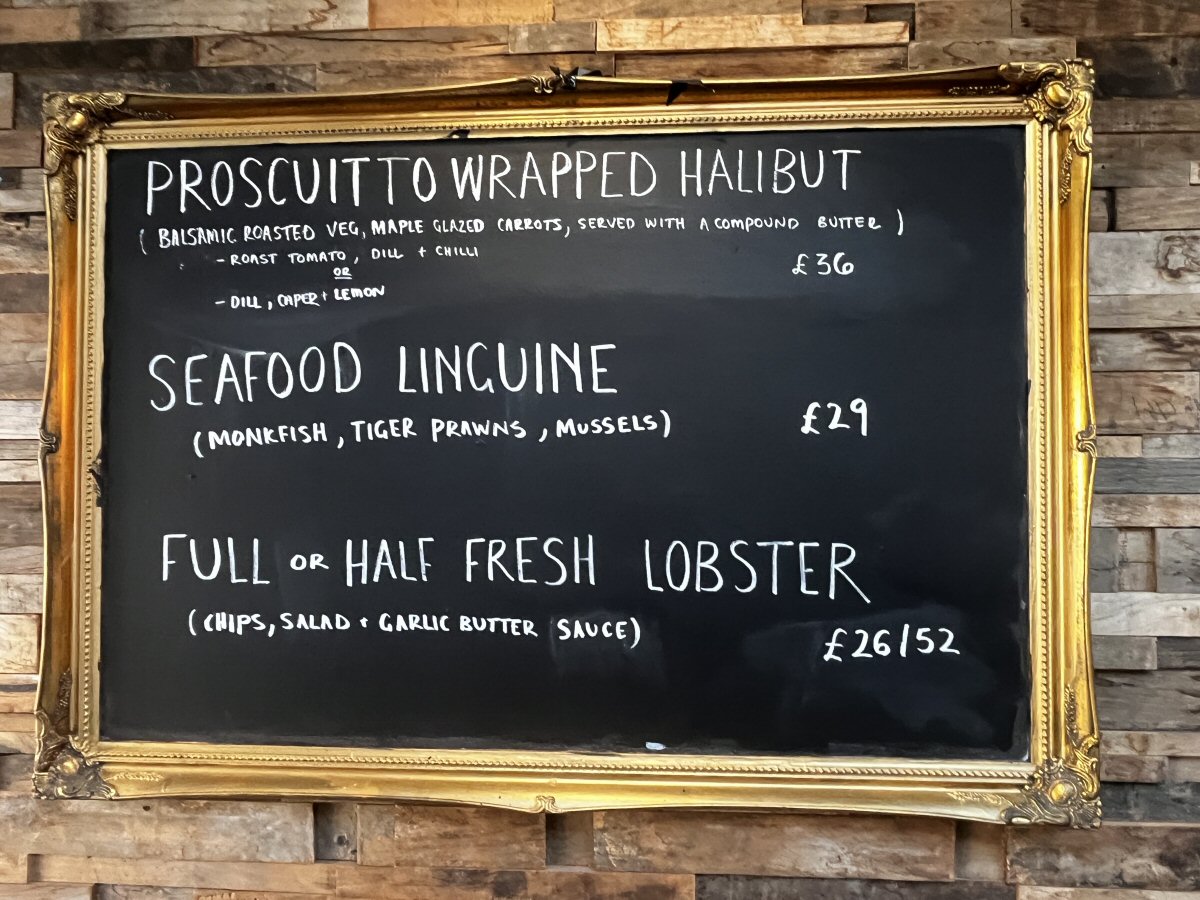 PROSCUITTO WRAPPED HALIBUT
( BALSAMIC ROASTED VEG, MAPLE GLAZED CARROTS, SERVED WITH A COMPOUND BUTTER )
- ROAST TOMATO, DILL + CHILLI
OR
£36
- DILL, CAPER + LEMON
SEAFOOD LINGUINE
(MONKFISH, TIGER PRAWNS, MUSSELS)
£29
FULL OR HALF FRESH LOBSTER
(CHIPS, SALAD + GARLIC BUTTER SAUCE)
£26/52